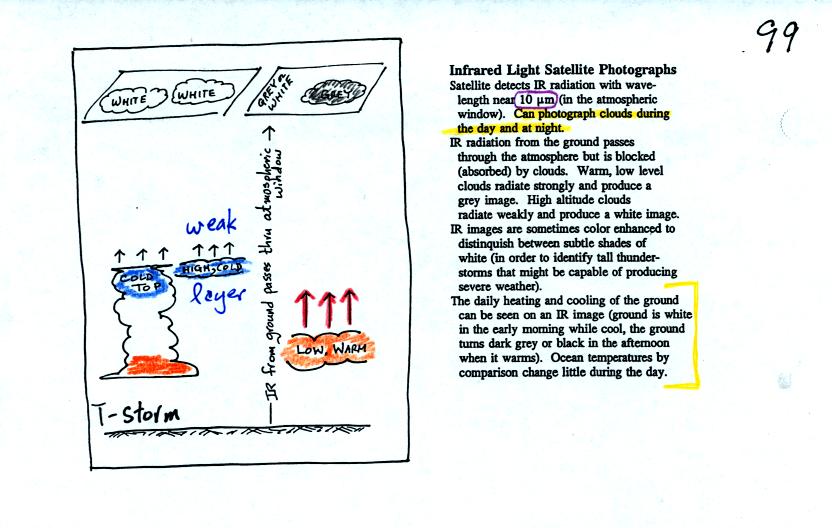 99
WHITE
WHITE
GREY OR
WHITE
GREY
IR from ground passes thru atmospheric
window
weak
COLD
TOP
HIGH, COLD
layer
LOW, WARM
T-Storm
Infrared Light Satellite Photographs
Satellite detects IR radiation with wave-
length near 10 μm (in the atmospheric
window). Can photograph clouds during
the day and at night.
IR radiation from the ground passes
through the atmosphere but is blocked
(absorbed) by clouds. Warm, low level
clouds radiate strongly and produce a
grey image. High altitude clouds
radiate weakly and produce a white image.
IR images are sometimes color enhanced to
distinquish between subtle shades of
white (in order to identify tall thunder-
storms that might be capable of producing
severe weather).
The daily heating and cooling of the ground
can be seen on an IR image (ground is white
in the early morning while cool, the ground
turns dark grey or black in the afternoon
when it warms). Ocean temperatures by
comparison change little during the day.